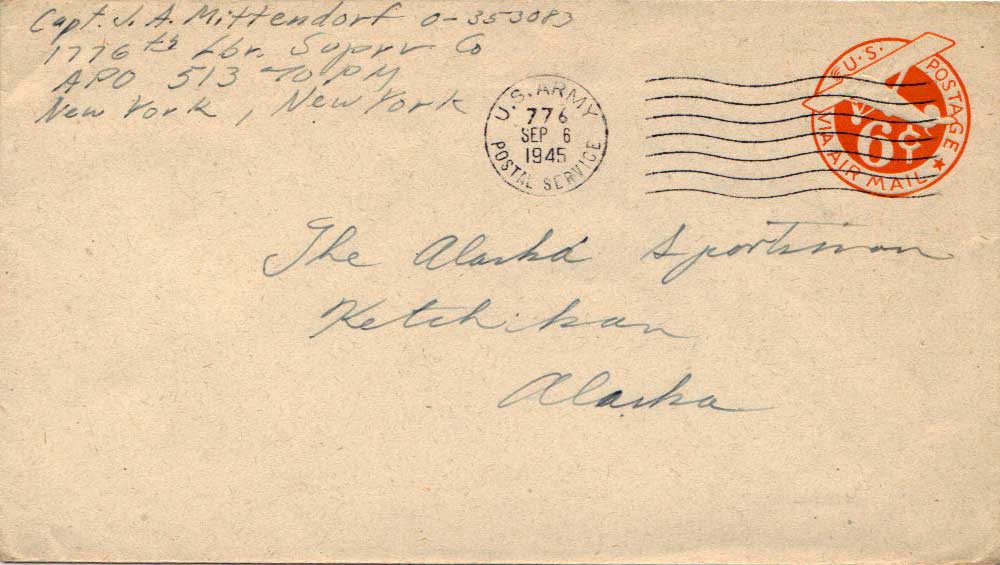 Capt. J. A. Mittendorf O-353083
1776th Lbr. Suprv Co
APO 513 % P M
New York, New York
U.S. ARMY
776
SEP 6
1945
POSTAL SERVICE
U.S. POSTAGE
6¢
VIA AIR MAIL
The Alaska Sportsman
Ketchikan
Alaska